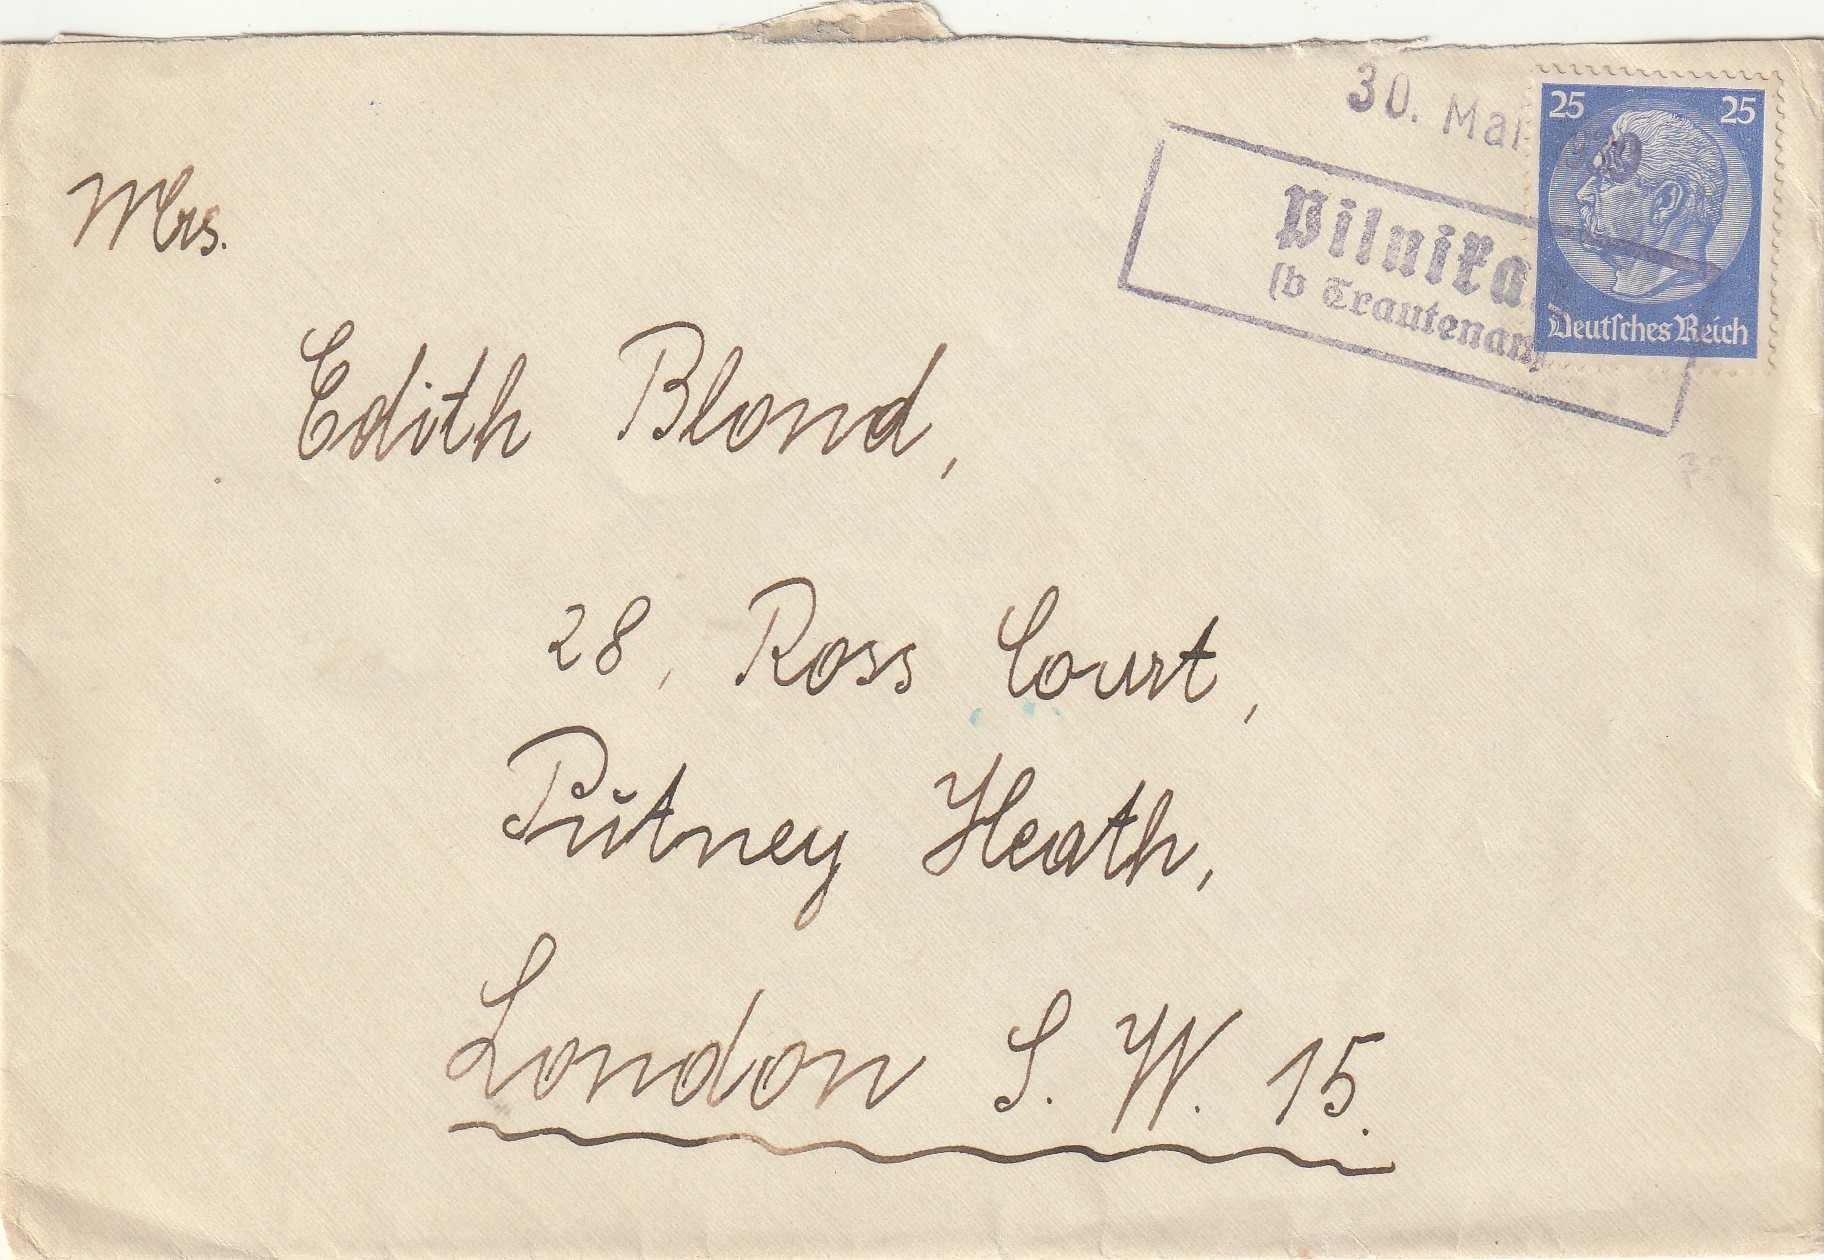 30. Mai
25 25
Pilnika
(b Trautenau)
Deutsches Reich
Mrs.
Edith Blond,
28, Ross Court,
Putney Heath,
London S. W. 15.